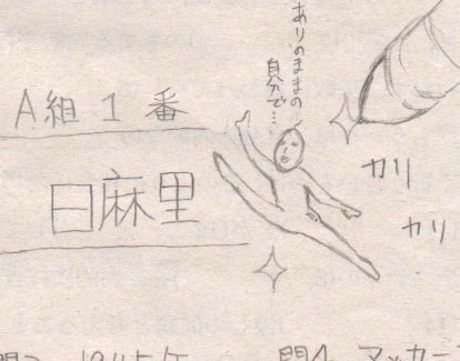 ありのままの
自分で…
A組 1 番
日麻里
カリ
カリ
問3 1945年
問4 マッカー